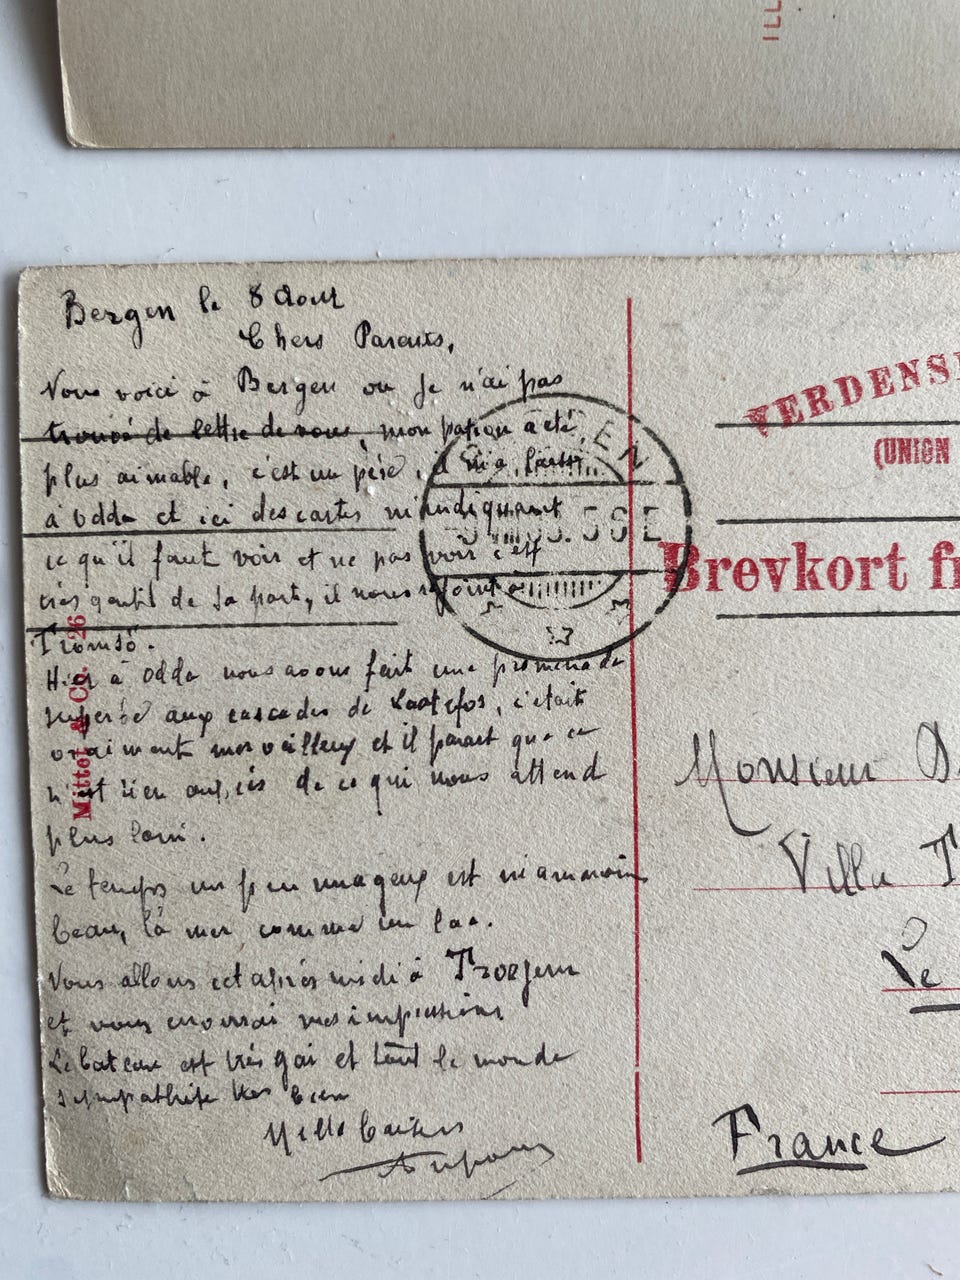 ILL
Bergen le 8 Aout
Chers Parents,
Nous voici à Bergen ou je n'ai pas
trouvé de lettre de vous, mon patron a été,
plus aimable, c'est un père, il m'a laissé
à Odda et ici des cartes m'indiquant
ce qu'il faut voir et ne pas voir c'est
très gentil de sa part, il nous rejoint a
Tromsö.
Hier à Odda nous avons fait une promenade
superbe aux cascades de Laatefos, c'etait
vraiment merveilleux et il parait que ce
n'est rien auprès de ce qui nous attend
plus loin.
Le temps un peu nuageux est néanmoins
beau, la mer comme un lac.
Nous allons cet après midi à
et vous enverrai mes impressions
Le bateau est très gai et tout le monde
sympathise très bien
Mille baisers
Mittet & Co. 26
EN
VERDENS
(UNION
Brevkort fr
Monsieur D
Villa T
Le
France